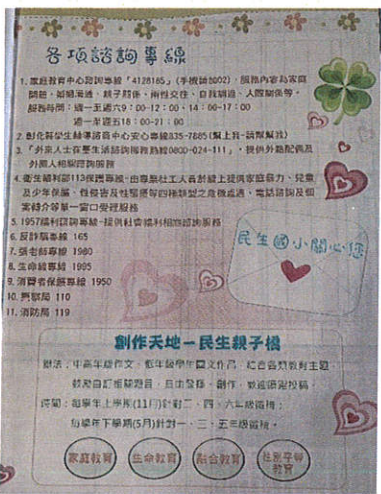 各項諮詢專線
1. 家庭教育中心諮詢專線「4128185」(手機請加02)，服務內容為家庭
問題、婚姻溝通、親子關係、兩性交往、自我調適、人際關係等。
服務時間：週一至週六9：00-12：00、14：00-17：00
週一至週五18：00-21：00
2. 彰化縣學生輔導諮商中心安心專線835-7885(幫上我-請幫幫我)
3. 「外來人士在臺生活諮詢服務熱線0800-024-111」，提供外籍配偶及
外國人相關諮詢服務
4. 衛生福利部113保護專線-由專業社工人員於線上提供家庭暴力、兒童
及少年保護、性侵害及性騷擾等四種類型之危機處遇、電話諮詢及個
案轉介等單一窗口受理服務
5. 1957福利諮詢專線-提供社會福利相關諮詢服務
6. 反詐騙專線 165
7. 張老師專線 1980
8. 生命線專線 1995
9. 消費者保護專線 1950
10. 警察局 110
11. 消防局 119
民生國小關心您
創作天地－民生親子橋
辦法：中高年級作文、低年級學生圖文作品，結合各類教育主題，
鼓勵自訂相關題目，自由發揮、創作，歡迎踴躍投稿。
時間：每學年上學期(11月)針對二、四、六年級徵稿；
每學年下學期(5月)針對一、三、五年級徵稿。
家庭教育
生命教育
融合教育
性別平等
教育